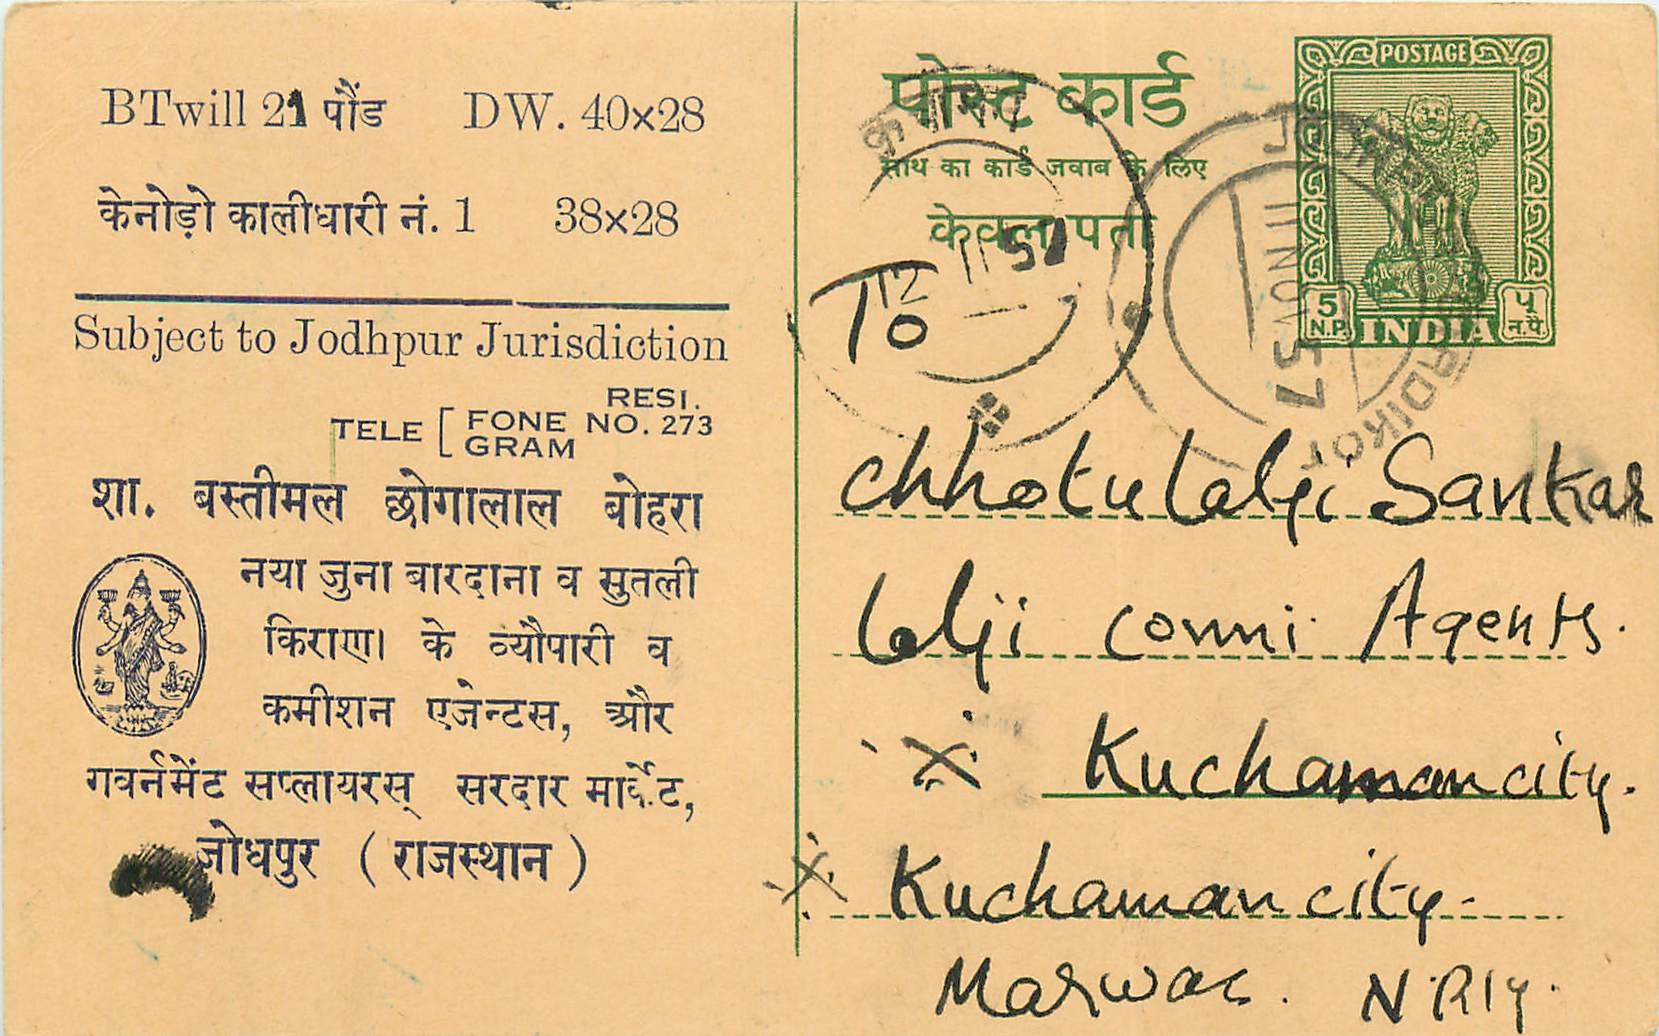 BTwill 21 पौंड DW. 40×28
केनोड़ो कालीधारी नं. 1 38×28
Subject to Jodhpur Jurisdiction
RESI.
TELE [ FONE NO. 273
GRAM
शा. बस्तीमल छोगालाल बोहरा
नया जुना बारदाना व सुतली
किराणा के व्यौपारी व
कमीशन एजेन्टस, और
गवर्नमेंट सप्लायरस् सरदार मार्केट,
जोधपुर ( राजस्थान )
पोस्ट कार्ड
साथ का कार्ड जवाब के लिए
केवल पता
POSTAGE
5 N.P.
INDIA
५ न.पै.
11 NOV 57
To
Chhotulalji Sankar
lalji Commi. Agents.
Kuchaman city.
Kuchaman city.
Marwar. N.Rly.